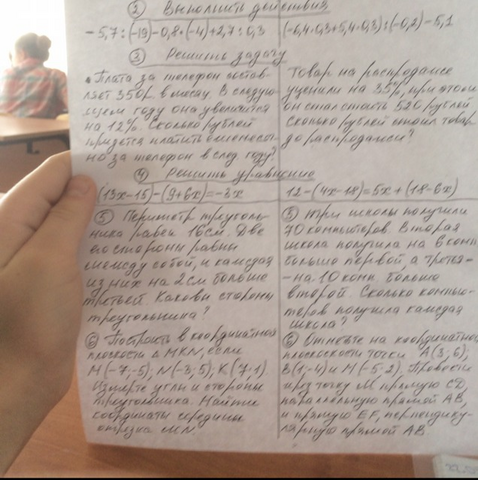 ② Выполнить действия
- 5,7 : (-19) - 0,8 · (-4) + 2,7 : 0,3
(-6,4 · 0,3 + 5,4 · 0,3) : (-0,2) - 5,1
③ Решить задачу
Плата за телефон состав-
ляет 350 р в месяц. В следую-
щем году она увеличится
на 12%. Сколько рублей
придется платить ежемесяч-
но за телефон в след году?
Товар на распродаже
уценили на 35%, при этом
он стал стоить 520 рублей
Сколько рублей стоил товар
до распродажи?
④ Решить уравнение
(13x-15) - (9+6x) = -3x
12 - (4x-18) = 5x + (18-6x)
⑤ Периметр треуголь-
ника равен 16 см. Две
его стороны равны
между собой, и каждая
из них на 2 см больше
третьей. Каковы стороны
треугольника?
⑤ Три школы получили
70 компьютеров. Вторая
школа получила на 6 комп
больше первой а третья-
-на 10 комп больше
второй. Сколько компью-
теров получила каждая
школа?
⑥ Построить в координатной
плоскости Δ MKN, если
M(-7;-5), N(-3; 5), K(7;1).
Измерьте углы и стороны
треугольника. Найти
координаты середины
отрезка MN
⑥ Отметьте на координатной
плоскости точки A(3; 6),
B(1;-4) и M(-5; 2). Провести
через точку M прямую CD,
параллельную прямой AB,
и прямую EF, перпендику-
лярную прямой AB.